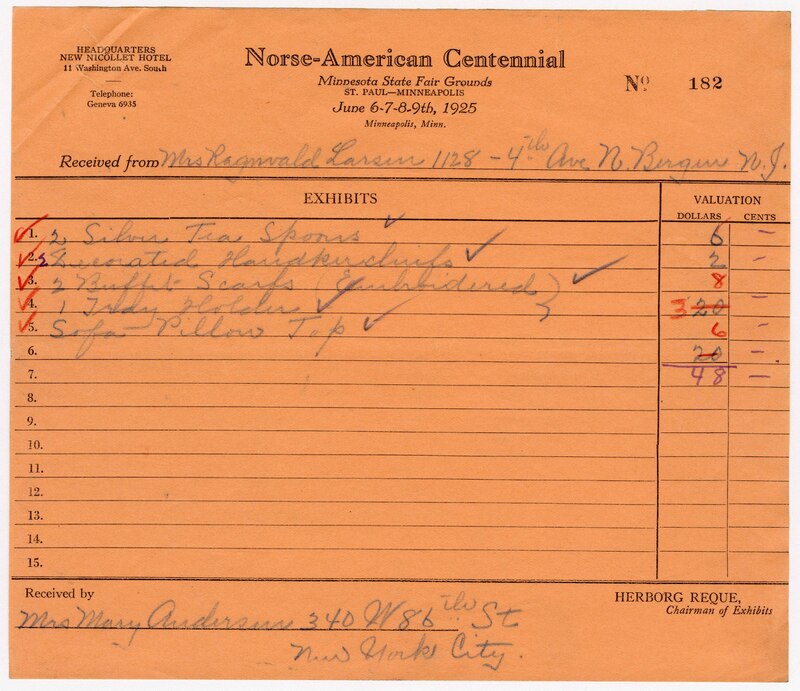 HEADQUARTERS
NEW NICOLLET HOTEL
11 Washington Ave. South
Telephone:
Geneva 6935
Norse-American Centennial
Minnesota State Fair Grounds
ST. PAUL—MINNEAPOLIS
June 6-7-8-9th, 1925
Minneapolis, Minn.
Nº 182
Received from Mrs Ragnvald Larsen 1128 - 4th Ave N. Bergen N.J.
EXHIBITS VALUATION
DOLLARS CENTS
1. 2 Silver Tea Spoons 6 —
2. 2 Decorated Handkirchiefs 2 —
3. 2 Buffet Scarfs (Embroidered) 8
4. 1 Tidy Holders 3 20 —
5. Sofa Pillow Top 6 —
6. 20 —
7. 48 —
8.
9.
10.
11.
12.
13.
14.
15.
Received by
Mrs Mary Andersen 340 W 86th St
New York City.
HERBORG REQUE,
Chairman of Exhibits